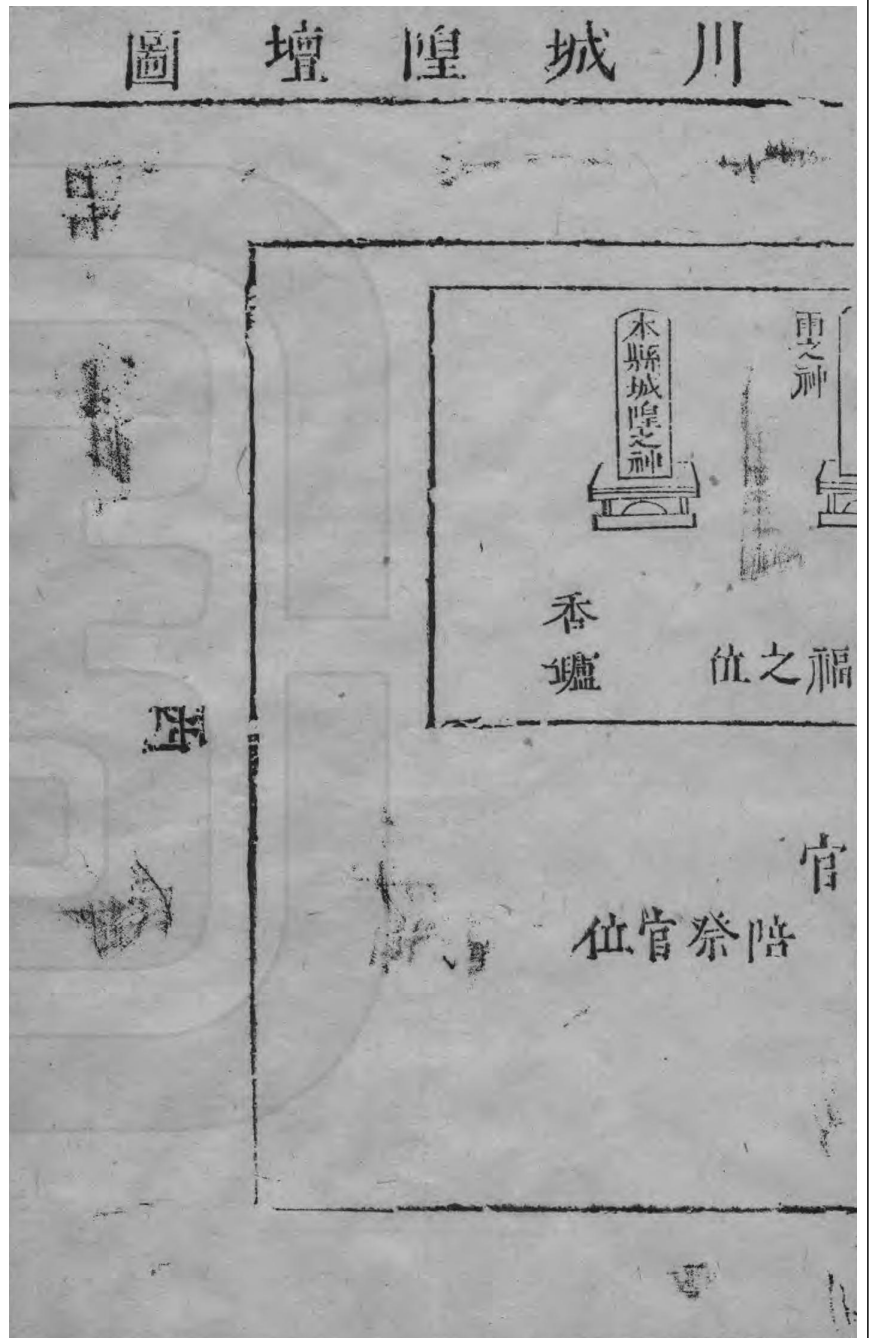 川城隍壇圖
雨之神
本縣城隍之神
福之位
香爐
官
陪祭官位
西